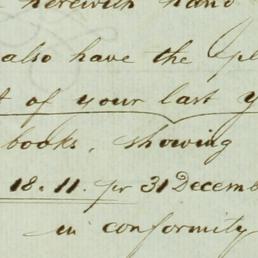 herewith hand
also have the ple
t of your last Y
books, showing
18.11. pr 31 Decemb
in conformity